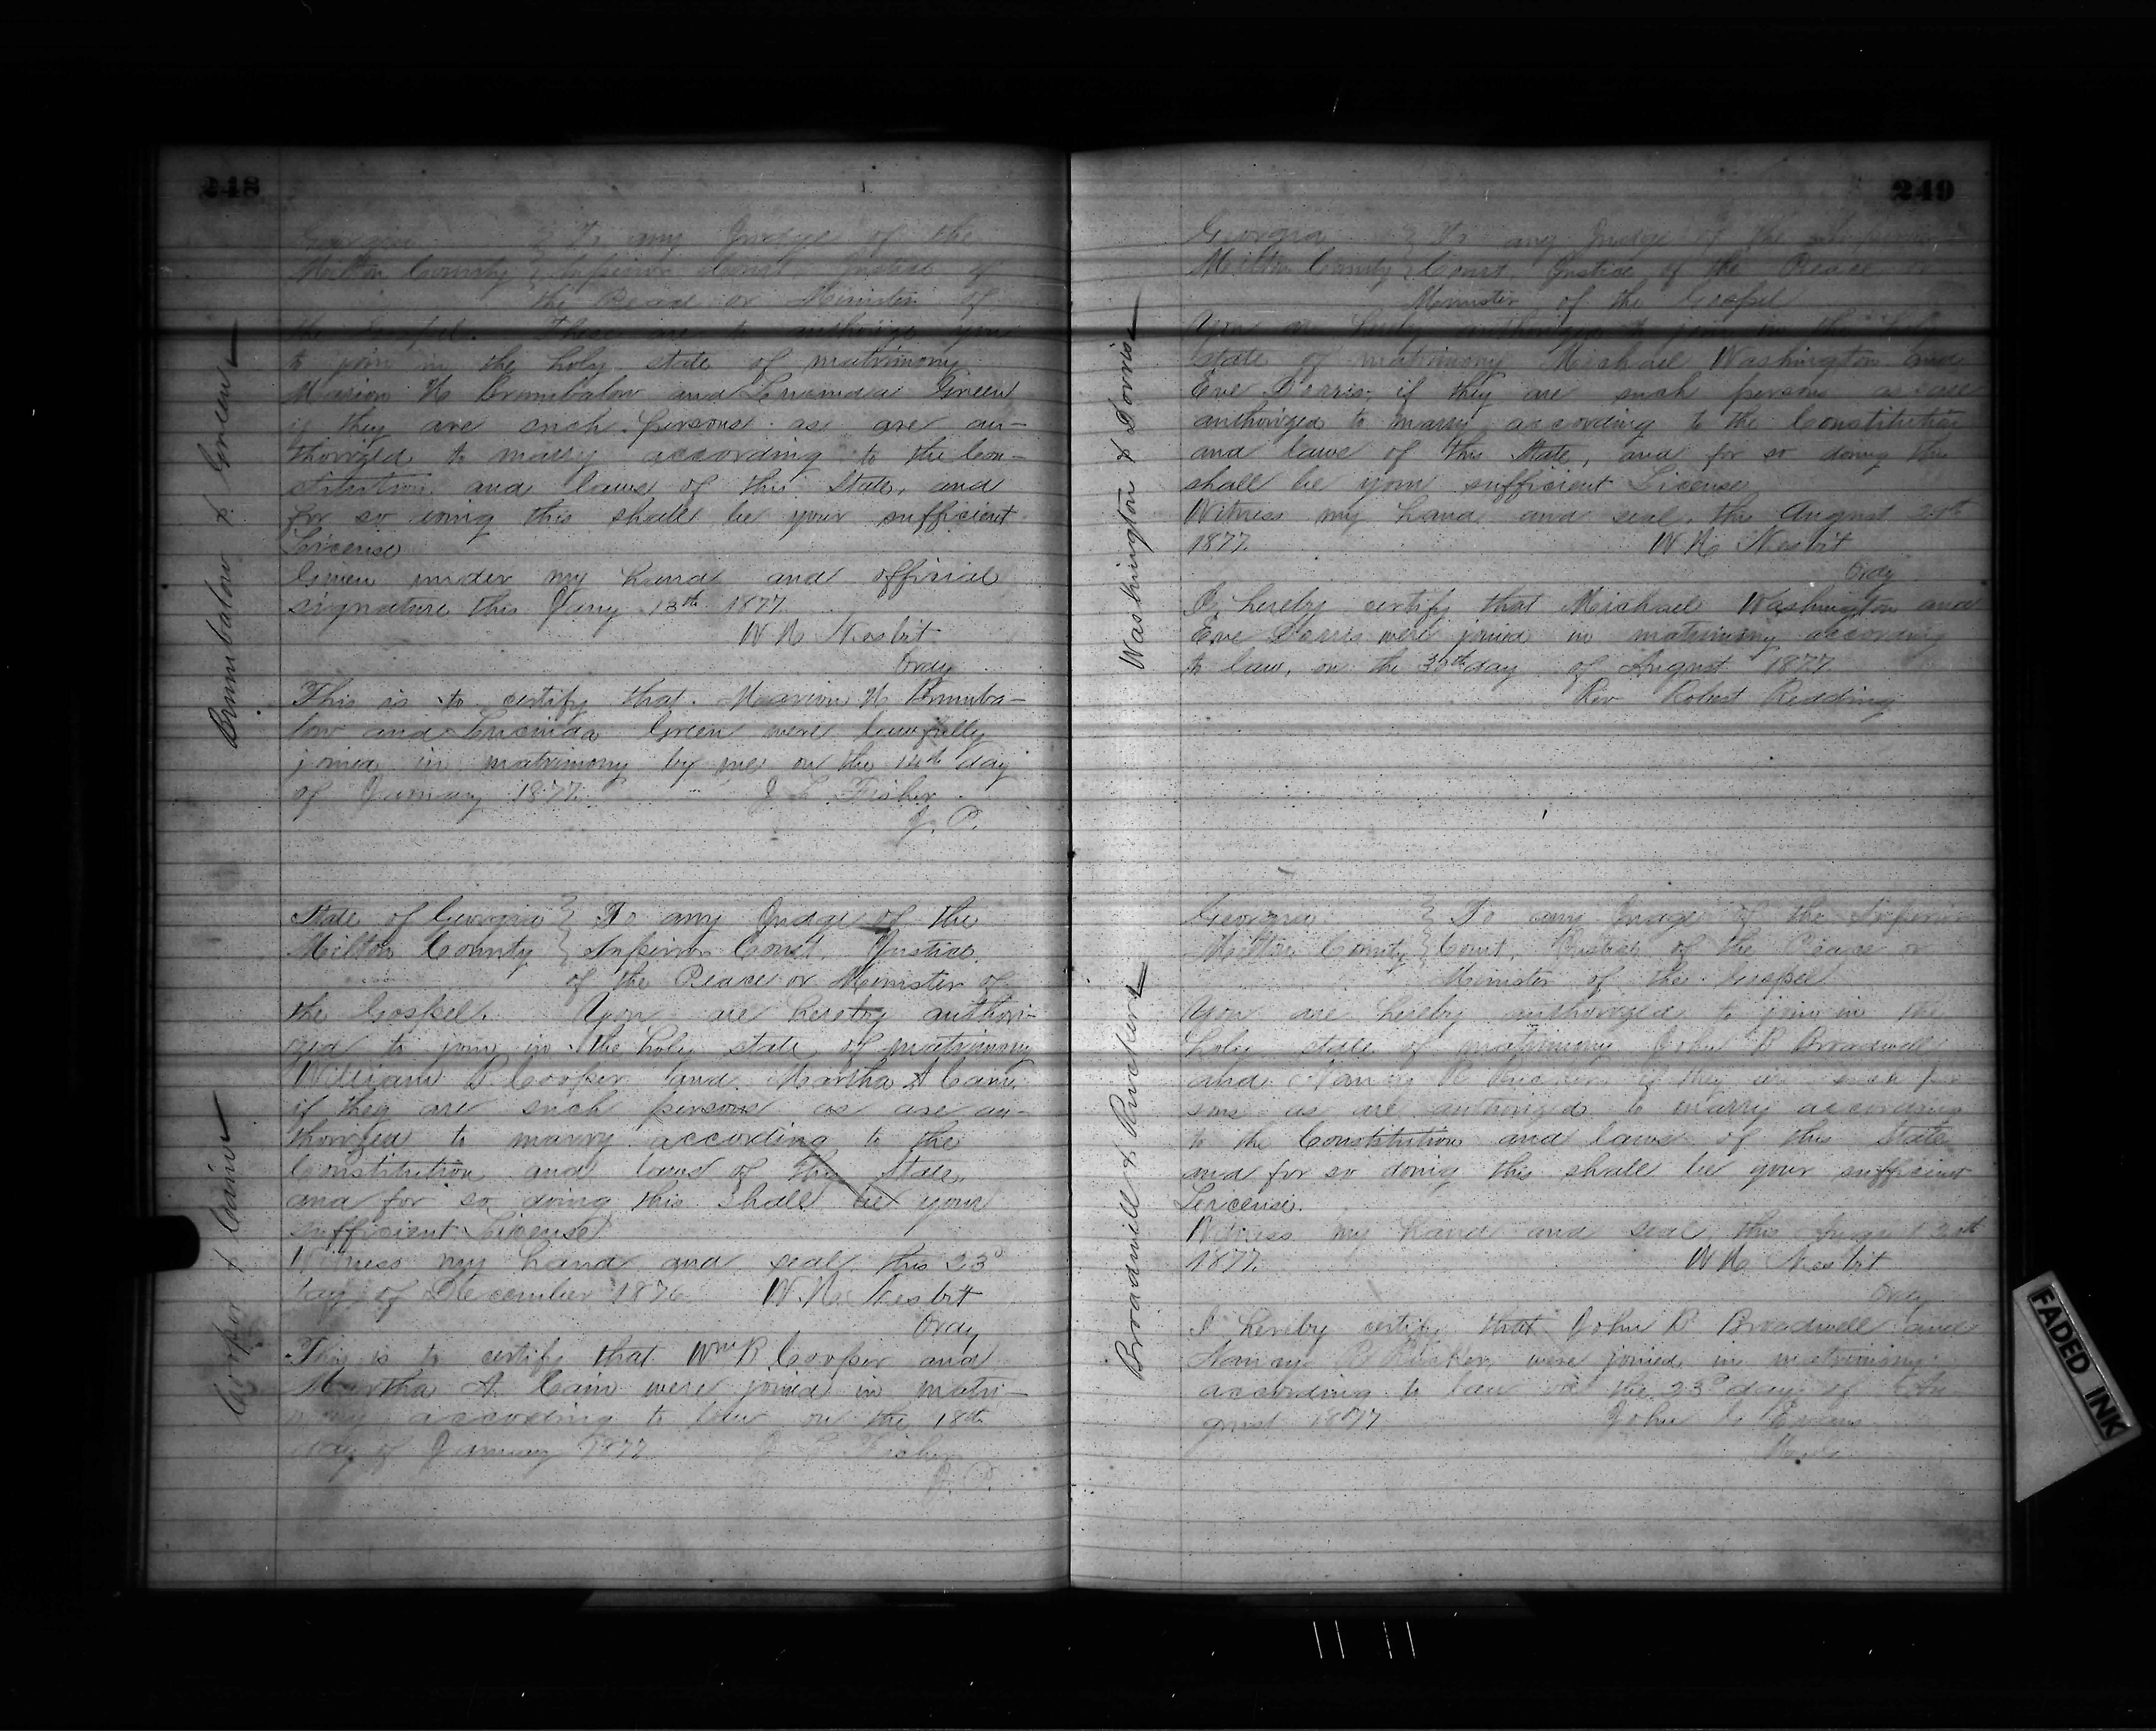 248
Brumbalow & Green
Georgia } To any Judge of the
Milton County } Inferior Court, Justice of
the Peace or Minister of
the Gospel. These are to authorize you
to join in the holy state of matrimony
Marion N Brumbalow and Green
if they are such persons as are au-
thorized to marry according to the Con-
stitution and laws of this State, and
for so doing this shall be your sufficient
License
Given under my hand and official
signature this Jany 13th 1877
W N Nesbit
Ordy
This is to certify that Marion N Brumba-
low and Green were lawfully
joined in matrimony by me on the 14th day
of January 1877. J L Fisher
J. P.
Cooper & Cain
State of Georgia } To any Judge of the
Milton County } Inferior Court, Justice
of the Peace or Minister of
the Gospel. You are hereby authori-
zed to join in the holy state of matrimony
William R Cooper and Martha A Cain
if they are such persons as are au-
thorized to marry according to the
Constitution and laws of this State,
and for so doing this shall be your
sufficient License
Witness my hand and seal this 23d
day of December 1876 W. N. Nesbit
Ordy
This is to certify that Wm R Cooper and
Martha A. Cain were joined in matri-
mony according to law on the 18th
day of January 1877 J L Fisher
J. P.
249
Washington & Dorris
Georgia } To any Judge of the Inferior
Milton County } Court, Justice of the Peace or
Minister of the Gospel
You are hereby authorized to join in the holy
state of matrimony Michael Washington and
Eve Dorris, if they are such persons as are
authorized to marry according to the Constitution
and laws of this State, and for so doing this
shall be your sufficient License
Witness my hand and seal, this August
1877. W N Nesbit
Ordy
I hereby certify that Michael Washington and
Eve Dorris were joined in matrimony according
to law, on the 30th day of August 1877
Rev Robert Redding
Broadwell & Rucker
Georgia } To any Judge of the Inferior
Milton County } Court, Justice of the Peace or
Minister of the Gospel
You are hereby authorized to join in the
holy state of matrimony John B Broadwell
and R Rucker if they are such per
sons as are authorized to marry according
to the Constitution and laws of this State
and for so doing this shall be your sufficient
License.
Witness my hand and seal this August
1877. W N Nesbit
Ordy
I hereby certify that John B Broadwell and
R Rucker were joined in matrimony
according to law on the 23d day of Au
gust 1877 John G Evans
FADED INK